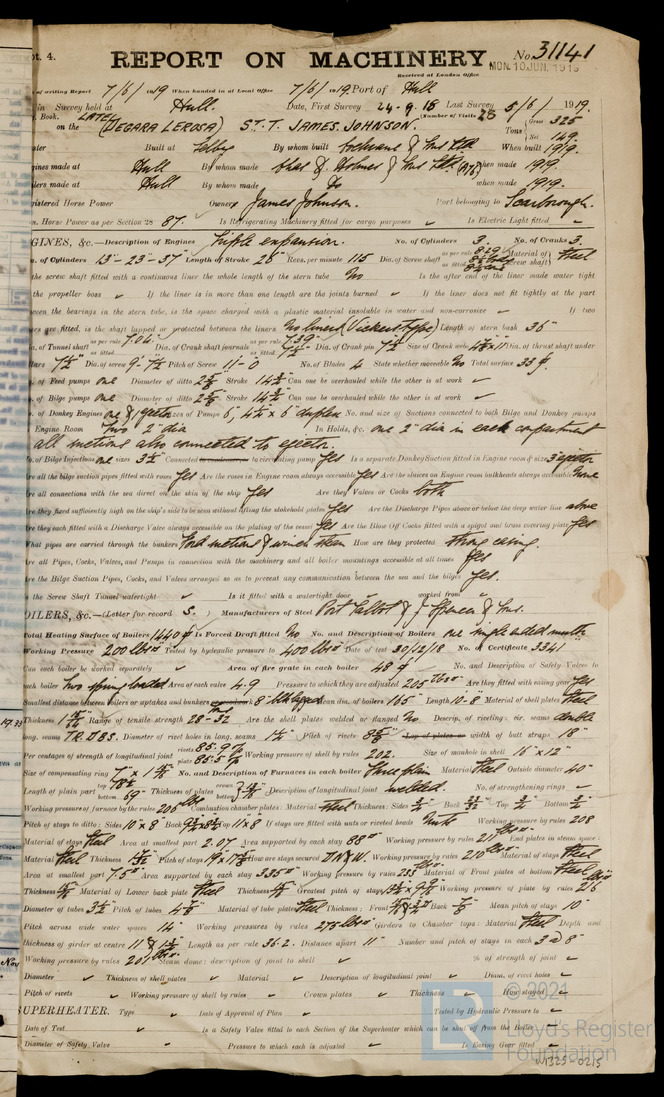 pt. 4.
REPORT ON MACHINERY
No. 31141
Received at London Office
MON. 10 JUN. 1919
of writing Report 7/6/1919 When handed in at Local Office 7/6/1919. Port of Hull
in Survey held at Hull. Date, First Survey 24-9-18 Last Survey 5/6/1919.
Book. (Number of Visits 28
on the LATE (JEGARA LEROSA) S.T. JAMES. JOHNSON. Tons Gross 325 Net 149
Built at Selby By whom built Cochrane & Sons Ltd When built 1919.
gines made at Hull By whom made Chas D. Holmes & Sons Ltd when made 1919.
lers made at Hull By whom made Do when made 1919.
istered Horse Power Owners James Johnson. Port belonging to Scarborough.
Horse Power as per Section 28 87. Is Refrigerating Machinery fitted for cargo purposes Is Electric Light fitted
GINES, &c.—Description of Engines Triple expansion. No. of Cylinders 3. No. of Cranks 3.
of Cylinders 13"-23"-37" Length of Stroke 26" Revs. per minute 115 Dia. of Screw shaft as per rule Material of screw shaft Steel
the screw shaft fitted with a continuous liner the whole length of the stern tube No Is the after end of the liner made water tight
the propeller boss If the liner is in more than one length are the joints burned If the liner does not fit tightly at the part
ween the bearings in the stern tube, is the space charged with a plastic material insoluble in water and non-corrosive If two
ers are fitted, is the shaft lapped or protected between the liners No liners (Vickers type) Length of stern bush 36"
of Tunnel shaft as per rule 7.04 Dia. of Crank shaft journals as per rule 7.39 as fitted 7½" Dia. of Crank pin 7½" Size of Crank webs Dia. of thrust shaft under
llars 7½" Dia. of screw 9'-7½" Pitch of Screw 11'-0 No. of Blades 4 State whether moveable No Total surface 33
of Feed pumps one Diameter of ditto Stroke Can one be overhauled while the other is at work
of Bilge pumps one Diameter of ditto Stroke Can one be overhauled while the other is at work
of Donkey Engines one & ejector Sizes of Pumps duplex No. and size of Suctions connected to both Bilge and Donkey pumps
Engine Room Two 2" dia In Holds, &c. one 2" dia in each compartment
all suctions also connected to ejector.
of Bilge Injections one sizes 3½" Connected to condenser, or to circulating pump Yes Is a separate Donkey Suction fitted in Engine room & size 3" ejector
Are all the bilge suction pipes fitted with roses Yes Are the roses in Engine room always accessible Yes Are the sluices on Engine room bulkheads always accessible None
Are all connections with the sea direct on the skin of the ship Yes Are they Valves or Cocks both
Are they fixed sufficiently high on the ship's side to be seen without lifting the stokehold plates Yes Are the Discharge Pipes above or below the deep water line above
Are they each fitted with a Discharge Valve always accessible on the plating of the vessel Yes Are the Blow Off Cocks fitted with a spigot and brass covering plate Yes
What pipes are carried through the bunkers Hold suctions & winch steam How are they protected Strong casing.
Are all Pipes, Cocks, Valves, and Pumps in connection with the machinery and all boiler mountings accessible at all times Yes
Are the Bilge Suction Pipes, Cocks, and Valves arranged so as to prevent any communication between the sea and the bilges Yes.
Is the Screw Shaft Tunnel watertight Is it fitted with a watertight door worked from
OILERS, &c.—(Letter for record S.) Manufacturers of Steel Port Talbot & J Spencer & Sons.
Total Heating Surface of Boilers 1440 Is Forced Draft fitted No No. and Description of Boilers one single ended multr
Working Pressure 200 lbs Tested by hydraulic pressure to 400 lbs Date of test 30/12/18 No. of Certificate 3341
Can each boiler be worked separately Area of fire grate in each boiler 48 No. and Description of Safety Valves to
each boiler Two spring loaded Area of each valve 4.9 Pressure to which they are adjusted 205 lbs Are they fitted with easing gear Yes
Smallest distance between boilers or uptakes and bunkers 8" Mean dia. of boilers 165" Length 10'-8 Material of shell plates Steel
Thickness Range of tensile strength 28-32 Are the shell plates welded or flanged No Descrip. of riveting: cir. seams double
long. seams TR. DBS. Diameter of rivet holes in long. seams 1¼" Pitch of rivets 8⅝" Lap of plates or width of butt straps 18"
Per centages of strength of longitudinal joint rivets 85.9% plate 85.5% Working pressure of shell by rules 202. Size of manhole in shell 16" x 12"
Size of compensating ring No. and Description of Furnaces in each boiler Three plain Material Steel Outside diameter 40"
Length of plain part top 78½" bottom 69" Thickness of plates crown bottom Description of longitudinal joint welded. No. of strengthening rings
Working pressure of furnace by the rules 206 lbs Combustion chamber plates: Material Steel Thickness: Sides Back Top Bottom
Pitch of stays to ditto: Sides 10" x 8" Back Top 11" x 8" If stays are fitted with nuts or riveted heads Nuts Working pressure by rules 208
Material of stays Steel Area at smallest part 2.07 Area supported by each stay 88 Working pressure by rules End plates in steam space:
Material Steel Thickness Pitch of stays How are stays secured D.N & W. Working pressure by rules 210 lbs Material of stays Steel
Area at smallest part 7.5 Area supported by each stay 335 Working pressure by rules 233 Material of Front plates at bottom Steel
Thickness Material of Lower back plate Steel Thickness Greatest pitch of stays Working pressure of plate by rules 216
Diameter of tubes 3½" Pitch of tubes 4⅞ Material of tube plates Steel Thickness: Front Back Mean pitch of stays 10"
Pitch across wide water spaces 14" Working pressures by rules 275 lbs Girders to Chamber tops: Material Steel Depth and
thickness of girder at centre Length as per rule 36.2. Distance apart 11" Number and pitch of stays in each 3 @ 8"
Working pressure by rules Steam dome: description of joint to shell % of strength of joint
Diameter Thickness of shell plates Material Description of longitudinal joint Diam. of rivet holes
Pitch of rivets Working pressure of shell by rules Crown plates Thickness How stayed
SUPERHEATER. Type Date of Approval of Plan Tested by Hydraulic Pressure to
Date of Test Is a Safety Valve fitted to each Section of the Superheater which can be shut off from the Boiler
Diameter of Safety Valve Pressure to which each is adjusted Is Easing Gear fitted
© 2021
Lloyd's Register
Foundation
W1325-0215